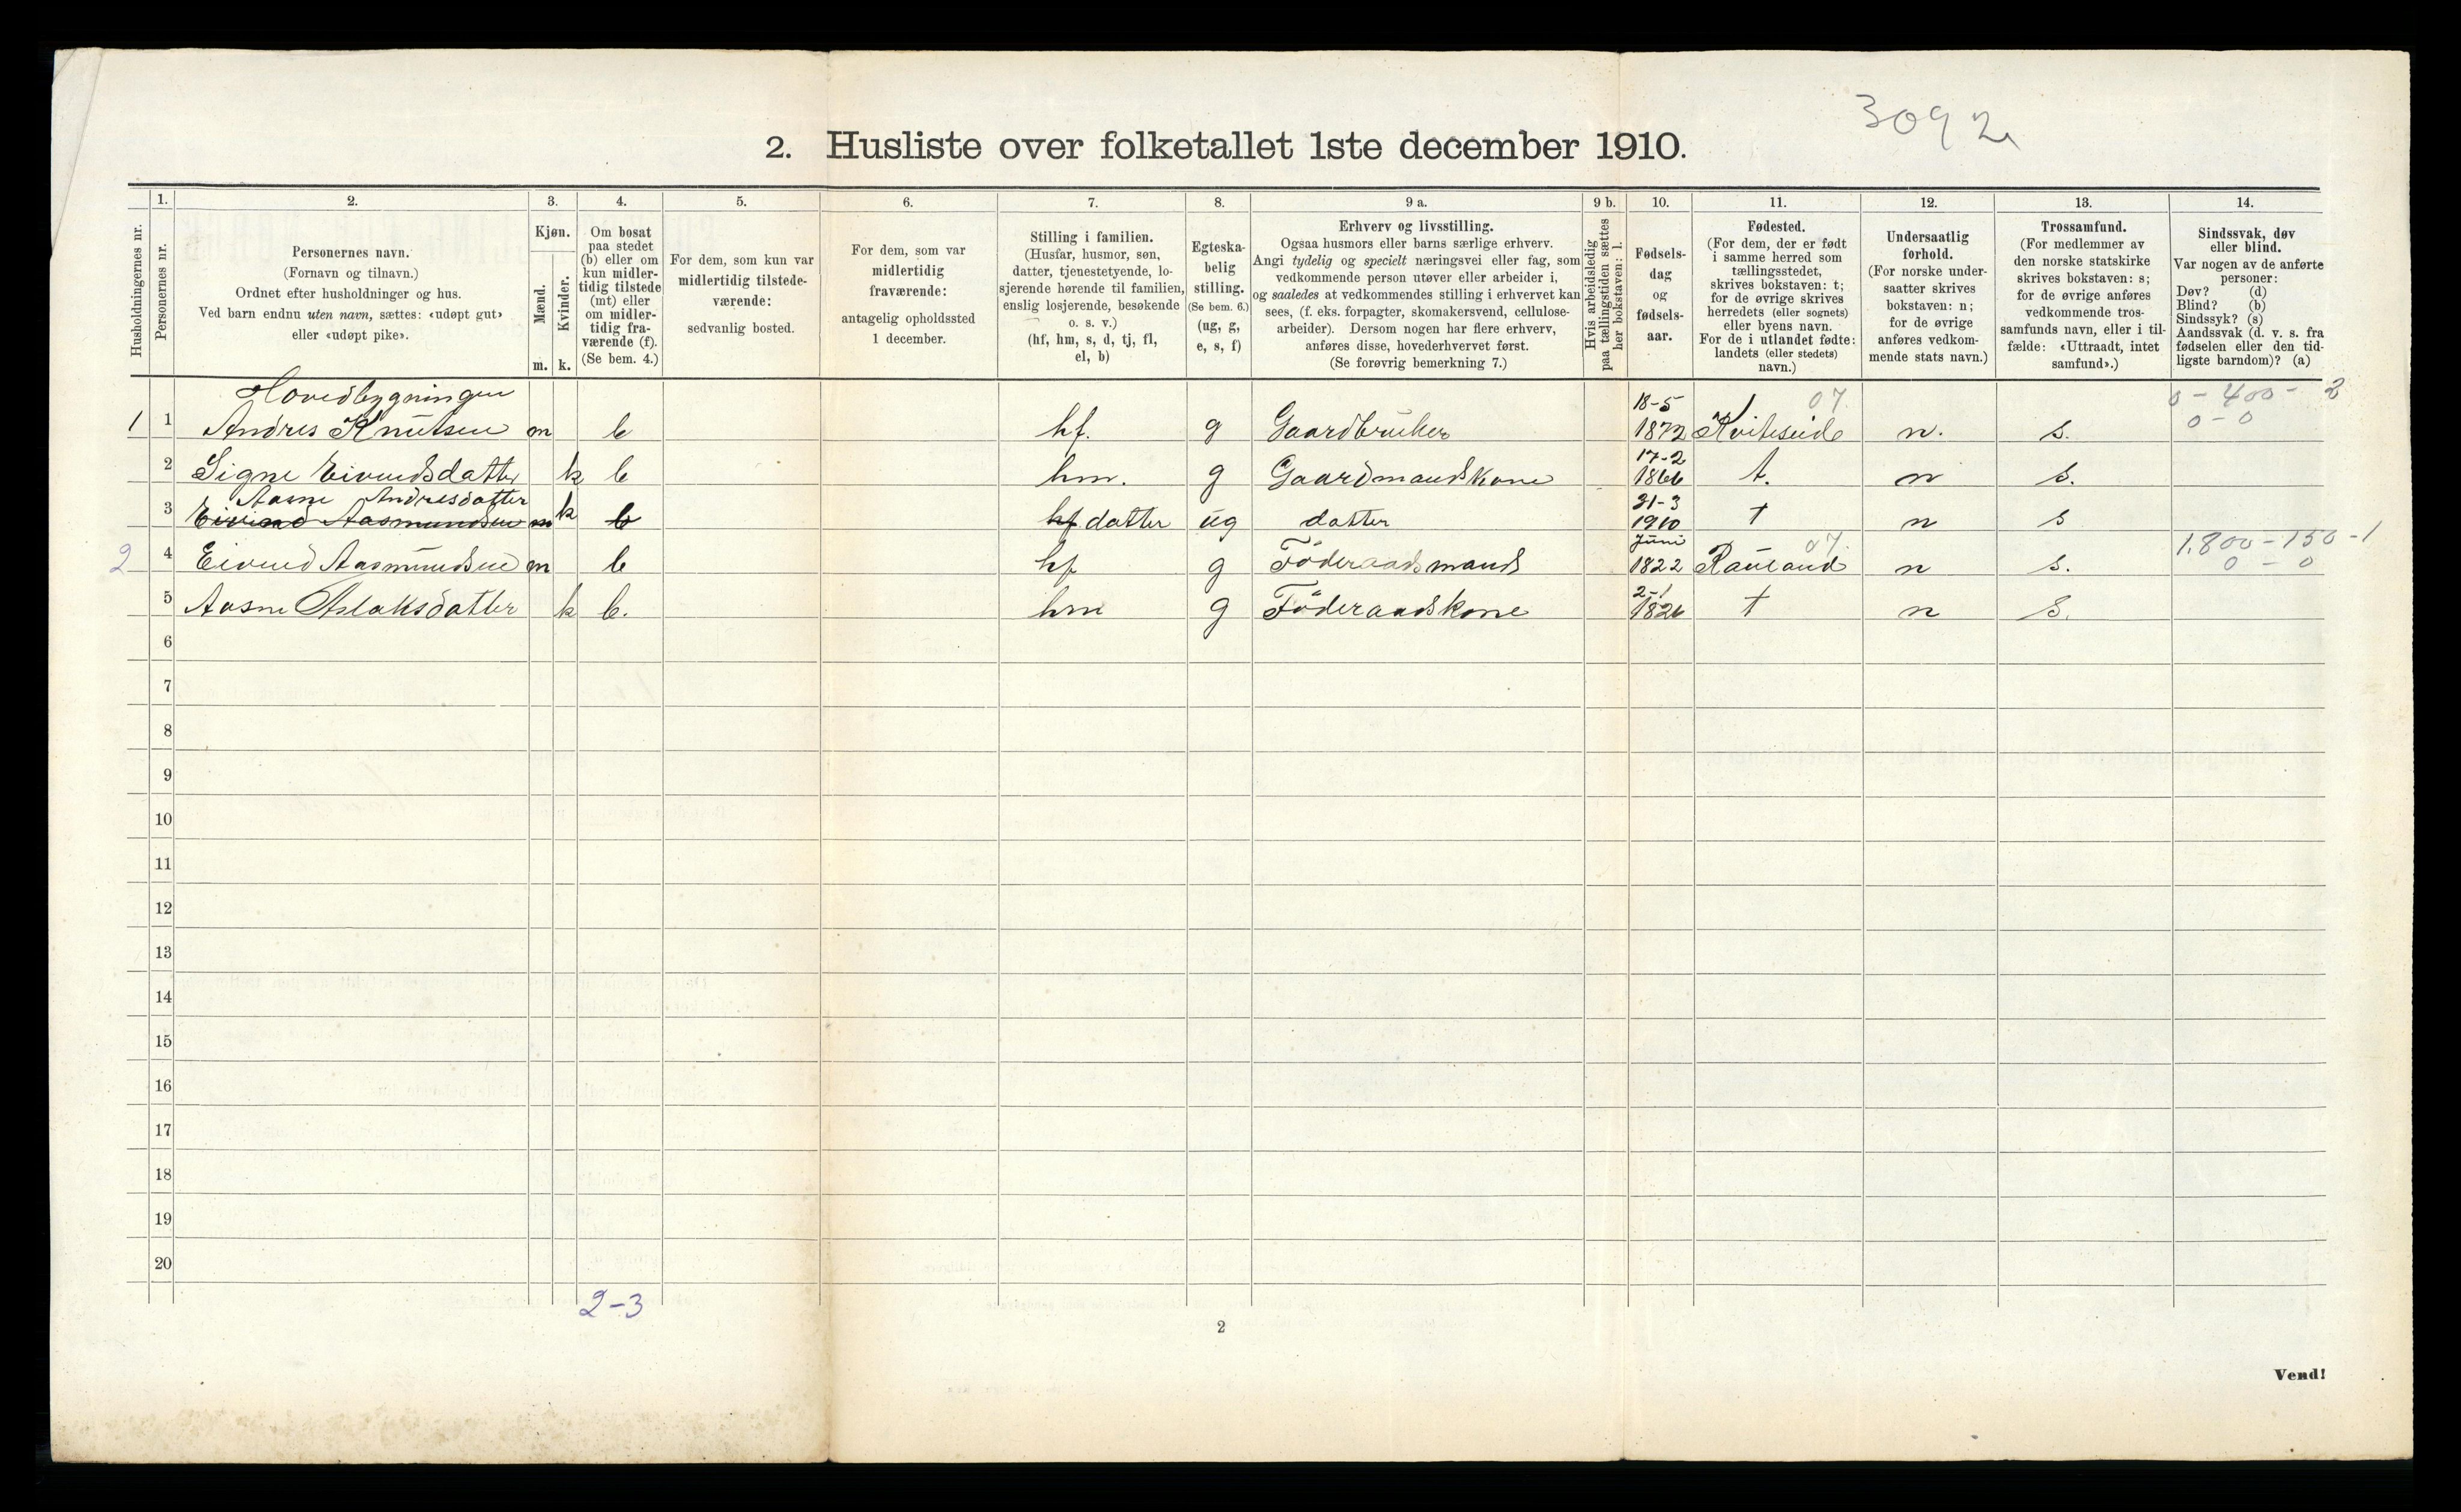 3092
2. Husliste over folketallet 1ste december 1910.
Husholdningernes nr.
1.
Personernes nr.
2.
Personernes navn.
(Fornavn og tilnavn.)
Ordnet efter husholdninger og hus.
Ved barn endnu uten navn, sættes: «udøpt gut»
eller «udøpt pike».
3.
Kjøn.
Mænd.
Kvinder.
m. k.
4.
Om bosat
paa stedet
(b) eller om
kun midler-
tidig tilstede
(mt) eller
om midler-
tidig fra-
værende (f).
(Se bem. 4.)
5.
For dem, som kun var
midlertidig tilstede-
værende:
sedvanlig bosted.
6.
For dem, som var
midlertidig
fraværende:
antagelig opholdssted
1 december.
7.
Stilling i familien.
(Husfar, husmor, søn,
datter, tjenestetyende, lo-
sjerende hørende til familien,
enslig losjerende, besøkende
o. s. v.)
(hf, hm, s, d, tj, fl,
el, b)
8.
Egteska-
belig
stilling.
(Se bem. 6.)
(ug, g,
e, s, f)
9 a.
Erhverv og livsstilling.
Ogsaa husmors eller barns særlige erhverv.
Angi tydelig og specielt næringsvei eller fag, som
vedkommende person utøver eller arbeider i,
og saaledes at vedkommendes stilling i erhvervet kan
sees, (f. eks. forpagter, skomakersvend, cellulose-
arbeider). Dersom nogen har flere erhverv,
anføres disse, hovederhvervet først.
(Se forøvrig bemerkning 7.)
9 b.
Hvis arbeidsledig
paa tællingstiden sættes
her bokstaven: l.
10.
Fødsels-
dag
og
fødsels-
aar.
11.
Fødested.
(For dem, der er født
i samme herred som
tællingsstedet,
skrives bokstaven: t;
for de øvrige skrives
herredets (eller sognets)
eller byens navn.
For de i utlandet fødte:
landets (eller stedets)
navn.)
12.
Undersaatlig
forhold.
(For norske under-
saatter skrives
bokstaven: n;
for de øvrige
anføres vedkom-
mende stats navn.)
13.
Trossamfund.
(For medlemmer av
den norske statskirke
skrives bokstaven: s;
for de øvrige anføres
vedkommende tros-
samfunds navn, eller i til-
fælde: «Uttraadt, intet
samfund».)
14.
Sindssvak, døv
eller blind.
Var nogen av de anførte
personer:
Døv? (d)
Blind? (b)
Sindssyk? (s)
Aandssvak (d. v. s. fra
fødselen eller den tid-
ligste barndom)? (a)
Hovedbygningen
18-5 07 0 - 400 - 2
1 1 Andres Knutsen m b hf. g Gaardbruker 1872 Kviteseid n. s. 0 - 0
17-2
2 Signe Eivindsdatter k b hm. g Gaardmandskone 1866 t. n s.
Aasne Andresdatter 21-3
3 Eivind Aasmundsen m k b hf datter ug datter 1910 t n s
Juni 07. 1.800 - 150 - 1
2 4 Eivind Aasmundsen m b hf g Föderaadsmand 1822 Rauland n s. 0 - 0
2-1
5 Aasne Aslaksdatter k b. hm g Föderaadskone 1826 t n s.
6
7
8
9
10
11
12
13
14
15
16
17
18
19
20
2-3
2
Vend!